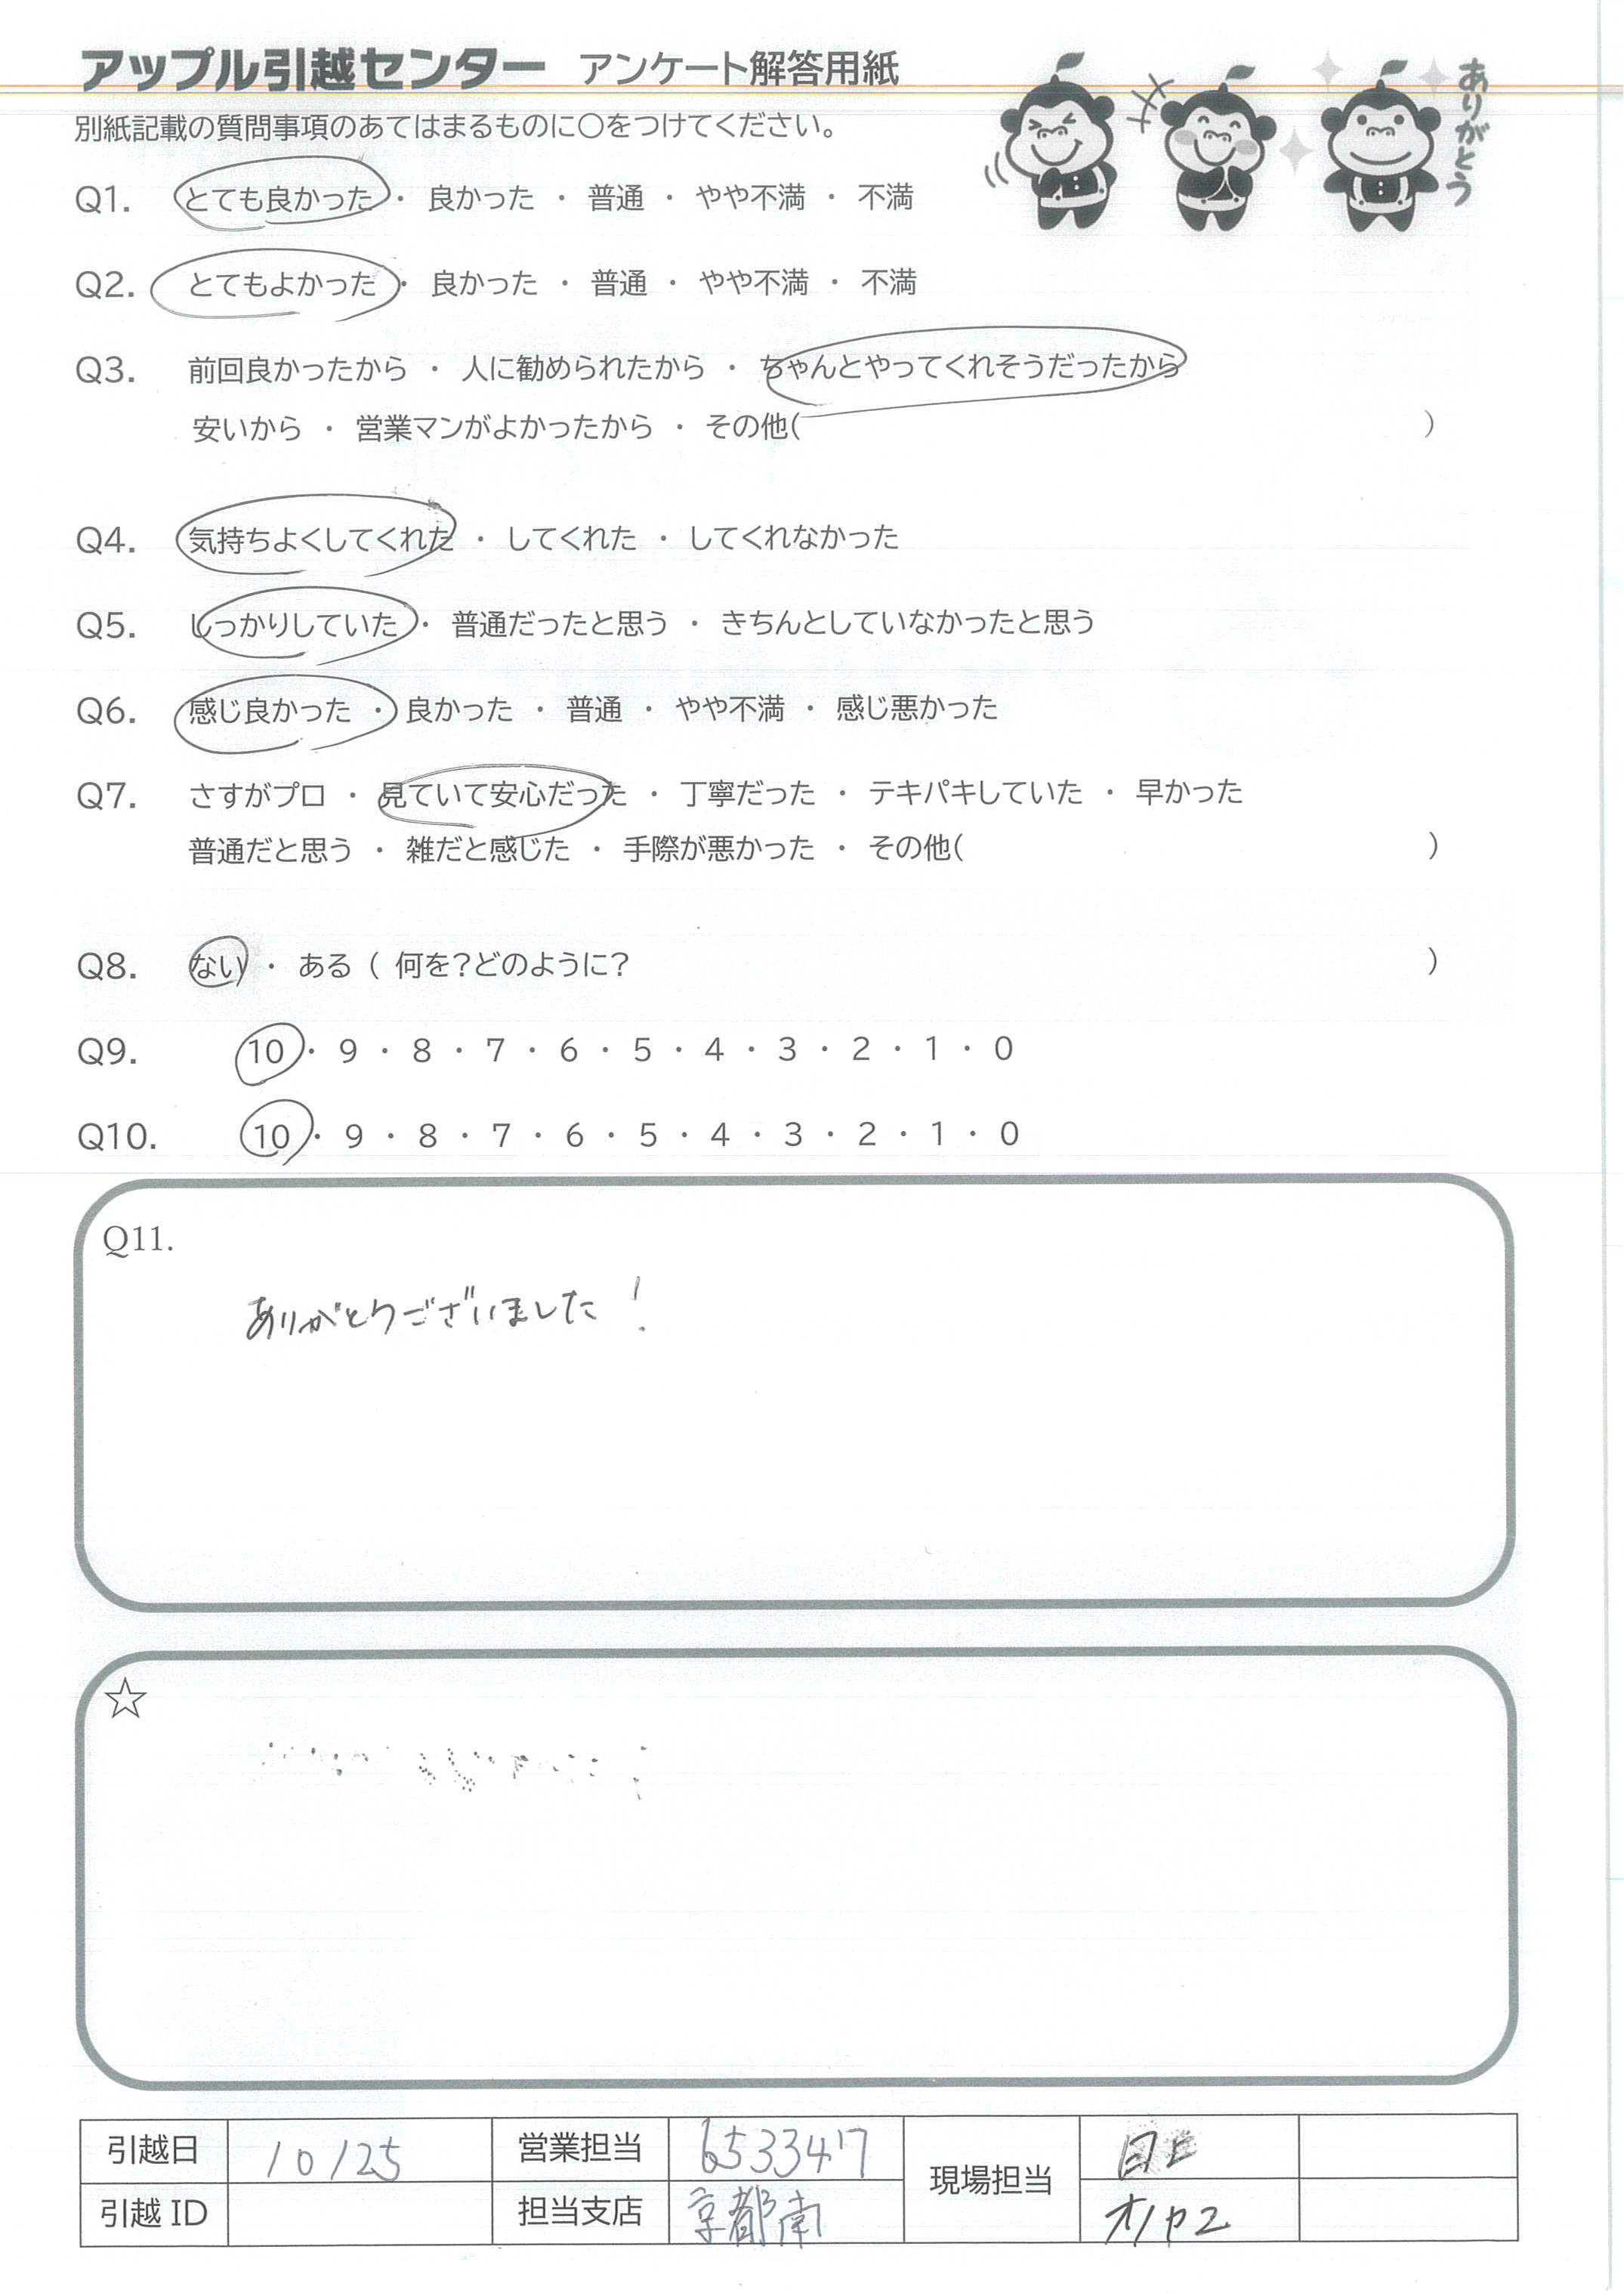 アップル引越センター アンケート解答用紙
ありがとう
別紙記載の質問事項のあてはまるものに○をつけてください。
Q1. とても良かった ・ 良かった ・ 普通 ・ やや不満 ・ 不満
Q2. とてもよかった ・ 良かった ・ 普通 ・ やや不満 ・ 不満
Q3. 前回良かったから ・ 人に勧められたから ・ ちゃんとやってくれそうだったから
安いから ・ 営業マンがよかったから ・ その他( )
Q4. 気持ちよくしてくれた ・ してくれた ・ してくれなかった
Q5. しっかりしていた ・ 普通だったと思う ・ きちんとしていなかったと思う
Q6. 感じ良かった ・ 良かった ・ 普通 ・ やや不満 ・ 感じ悪かった
Q7. さすがプロ ・ 見ていて安心だった ・ 丁寧だった ・ テキパキしていた ・ 早かった
普通だと思う ・ 雑だと感じた ・ 手際が悪かった ・ その他( )
Q8. ない ・ ある ( 何を?どのように? )
Q9. 10 ・ 9 ・ 8 ・ 7 ・ 6 ・ 5 ・ 4 ・ 3 ・ 2 ・ 1 ・ 0
Q10. 10 ・ 9 ・ 8 ・ 7 ・ 6 ・ 5 ・ 4 ・ 3 ・ 2 ・ 1 ・ 0
Q11.
ありがとうございました!
☆
引越日 10/25 営業担当 653347 現場担当
引越 ID 担当支店 京都南